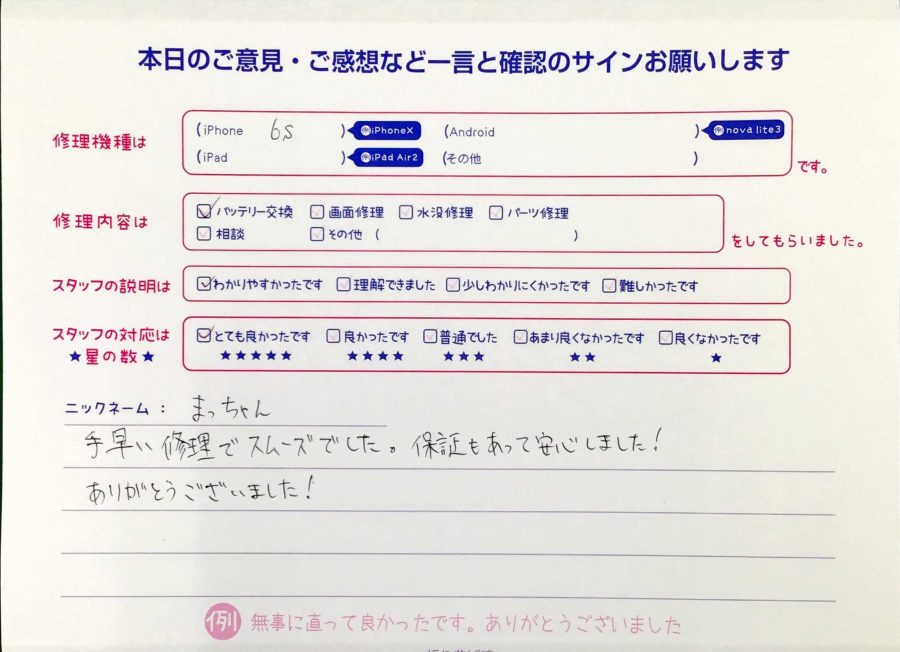 本日のご意見・ご感想など一言と確認のサインお願いします
修理機種は
(iPhone 6s ) 例iPhoneX (Android ) 例nova lite3
(iPad ) 例iPad Air2 (その他 )
です。
修理内容は
バッテリー交換 画面修理 水没修理 パーツ修理
相談 その他 ( )
をしてもらいました。
スタッフの説明は
わかりやすかったです 理解できました 少しわかりにくかったです 難しかったです
スタッフの対応は
★星の数★
とても良かったです 良かったです 普通でした あまり良くなかったです 良くなかったです
★★★★★ ★★★★ ★★★ ★★ ★
ニックネーム： まっちゃん
手早い修理でスムーズでした。保証もあって安心しました！
ありがとうございました！
例 無事に直って良かったです。ありがとうございました